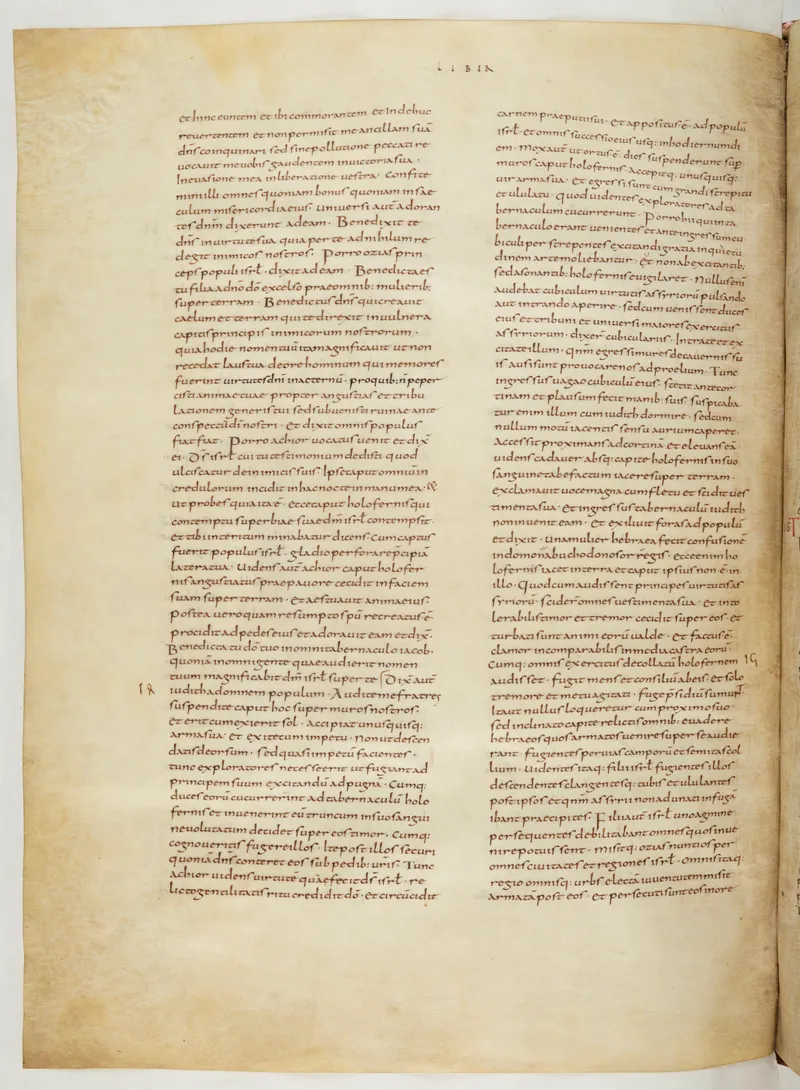 LIBER
et hinc euntem et ibi commorantem et inde huc
reuertentem et non permisit me ancillam suā
dn̄s coinquinari sed sine pollutione peccati re
uocauit me uobis gaudentem in uictoria sua ·
In euasione mea in liberatione uestra · Confite
mini illi omnes quoniam bonus quoniam in sae
culum misericordia eius · Uniuersi aut̄ adoran
tes dn̄m dixerunt ad eam · Benedixit te
dn̄s in uirtute sua quia per te ad nihilum re
degit inimicos nostros · Porro ozias prin
ceps populi isrl̄ · dixit ad eam · Benedicta es
tu filia a dn̄o dō excelso prae omnib: mulierib;
super terram · Benedictus dn̄s qui creauit
caelum et terram qui te direxit in uulnera
capitis principis inimicorum nostrorum ·
quia hodie nomen tuū ita magnificauit ut non
recedat laus tua de ore hominum qui memores
fuerint uirtutes dn̄i in aeternū · pro quib: n̄ peper
cisti animae tuae propter angustias et tribu
lationem generis tui sed subuenisti ruinae ante
conspectū dī nostri · Et dixit omnis populus
fiat fiat · Porro achior uocatus uenit et dix̄
ei · Ds̄ isrl̄ cui tu testimonium dedisti quod
ulciscatur de inimicis suis · Ipse caput omniū in
credulorum incidit in hac nocte in manu mea ·
ut probes quia ita ē · ecce caput holofernis qui
contemptu superbiae suae dm̄ isrl̄ contempsit ·
Et tibi interitum minabatur dicens · Cum captus
fuerit populus isrl̄ · gladio perforare p̄cipiā
latera tua · Uidens aut̄ achior caput holofer
nis angustiatus prae pauore cecidit in faciem
suam super terram · et aestuauit anima eius ·
Postea uero quam resumpto spū recreatus ē ·
procidit ad pedes eius et adorauit eam et dix̄ ·
Benedicta tu dō tuo in omni tabernaculo iacob ·
quoniā in omni gente quae audierit nomen
tuum magnificabit ds̄ isrl̄ super te · Dix̄ aut̄
iudith ad omnem populum · Audite me fratres
suspendite caput hoc super muros nostros ·
et erit cum exierit sol · accipiat unusquisq:
arma sua · Et exite cum impetu · non ut descen
datis deorsum · sed quasi impetū facientes ·
tunc exploratores necesse erit ut fugiant ad
principem suum excitandū ad pugnā · Cumq:
duces eorū cucurrerint ad tabernaculū holo
fernis et inuenerint eū truncum in suo sangui
ne uolutatum decidet super eos timor · Cumq:
cognoueritis fugere illos · Ite post illos securi
quoniā dn̄s conteret eos sub pedib: ur̄is · Tunc
achior uidens uirtutē quā fecit ds̄ isrl̄ · re
licto gentilitatis ritu credidit dō · et circūcidit
carnem praeputii sui · et appositus ē · ad populū
isrl̄ · et omnis successio eius usq: in hodiernum di
em · Mox aut̄ ut ortus ē · dies suspenderunt sup
muros caput holofernis · Accepitq: unusquisq:
uir arma sua · Et egressi sunt cum grandi strepitu
et ululatu · Quod uidentes exploratores ad ta
bernaculum cucurrerunt · Porro hi qui in ta
bernaculo erant uenientes et ante ingressum cu
biculi perstrepentes excitandi gratia inquietu
dinem arte moliebantur · ut non ab excitantib;
sed a sonantib: holofernis euigilaret · Nullus eni
audebat cubiculum uirtutis assyriorū pulsando
aut intrando aperire · Sed cum uenissent duces
eius et tribuni et uniuersi maiores exercitus
assyriorum · dixer̄ cubiculariis · Intrate et ex
citate illum · qn̄m egressi mures de cauernis suis
ausi sunt prouocare nos ad proelium · Tunc
ingressus uagao cubiculū eius · stetit ante cor
tinam et plausum fecit manib: suis · suspicaba
tur enim illum cum iudith dormire · Sed cum
nullum motū iacentis sensu aurium caperet ·
Accessit proximans ad cortinā et eleuans eā
uidens cadauer absq: capite holofernis in suo
sanguine tabefactum iacere super terram ·
exclamauit uoce magna cum fletu et scidit ues
timenta sua · Et ingressus tabernaculū iudith
non inuenit eam · Et exiliuit foras ad populū
et dixit · Una mulier hebraea fecit confusionē
in domo nabuchodonosor regis · Ecce enim ho
lofernis iacet in terra et caput ipsius non ē in
illo · Quod cum audissent principes uirtutis as
syriorū · sciderr̄ omnes uestimenta sua · et into
lerabilis timor et tremor cecidit super eos · et
turbati sunt animi eorū ualde · Et factus ē ·
clamor incomparabilis in media castra eorū ·
Cumq: omnis exercitus decollatū holofernem
audisset · fugit mens et consiliū ab eis · et solo
tremore et metu agitati · fugę p̄sidiū sumunt
Ita ut nullus loqueretur cum proximo suo ·
sed inclinato capite relictis omnib: euadere
hebraeos quos armatos uenire super se audie
rant · fugientes per uias camporū et semitas col
lium · Uidentes itaq: filii isrl̄ fugientes illos
descendentes clangentesq: tubis et ululantes
post ipsos et qn̄m assyrii non adunati in fugā
ibant praecipites · Filii aut̄ isrl̄ uno agmine
persequentes debilitabant omnes quos inue
nire potuissent · misitq: ozias nuntios per
omnes ciuitates et regiones isrl̄ · Omnis itaq:
regio omnisq: urbs electā iuuentutem misit
armatā post eos · et persecuti sunt eos in ore